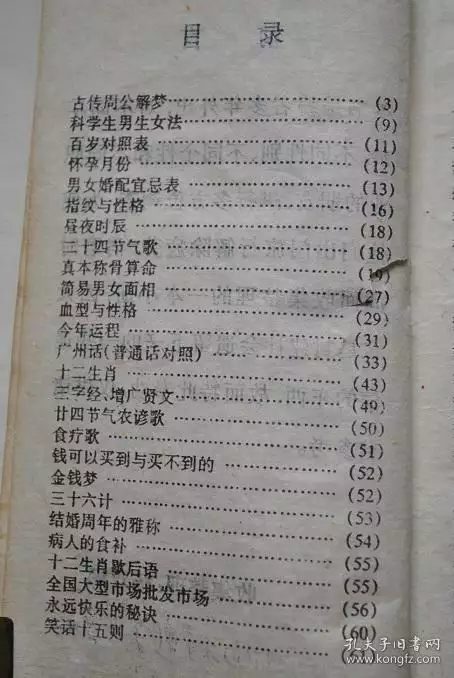 目 录
古传周公解梦 (3)
科学生男生女法 (9)
百岁对照表 (11)
怀孕月份 (12)
男女婚配宜忌表 (13)
指纹与性格 (16)
昼夜时辰 (18)
二十四节气歌 (18)
真本称骨算命 (19)
简易男女面相 (27)
血型与性格 (29)
今年运程 (31)
广州话(普通话对照) (33)
十二生肖 (43)
三字经、增广贤文 (49)
廿四节气农谚歌 (50)
食疗歌 (51)
钱可以买到与买不到的 (52)
金钱梦 (52)
三十六计 (53)
结婚周年的雅称 (54)
病人的食补 (55)
十二生肖歇后语 (55)
全国大型市场批发市场 (56)
永远快乐的秘诀 (60)
笑话十五则
孔夫子旧书网
kongfz.com